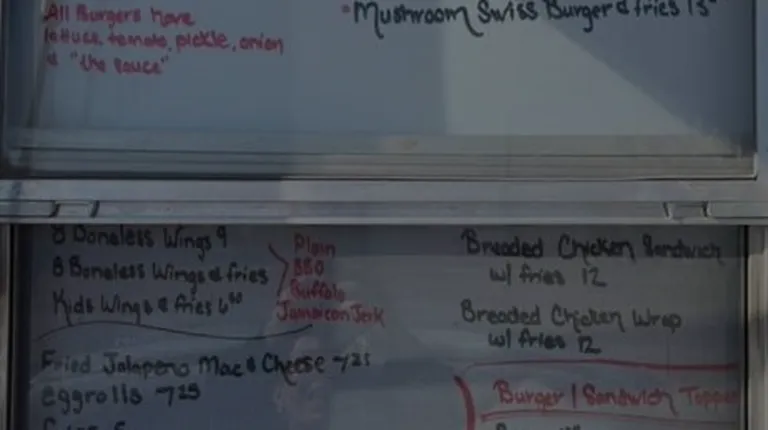 All Burgers have
lettuce, tomato, pickle, onion
& "the sauce"
Mushroom Swiss Burger & fries 13
8 Boneless Wings 9
8 Boneless Wings & fries
Kids Wings & fries 6
Plain
BBQ
Buffalo
Jamaican Jerk
Breaded Chicken Sandwich
w/ fries 12
Breaded Chicken Wrap
w/ fries 12
Fried Jalapeno Mac & Cheese 7.25
eggrolls 7.25
Burger / Sandwich